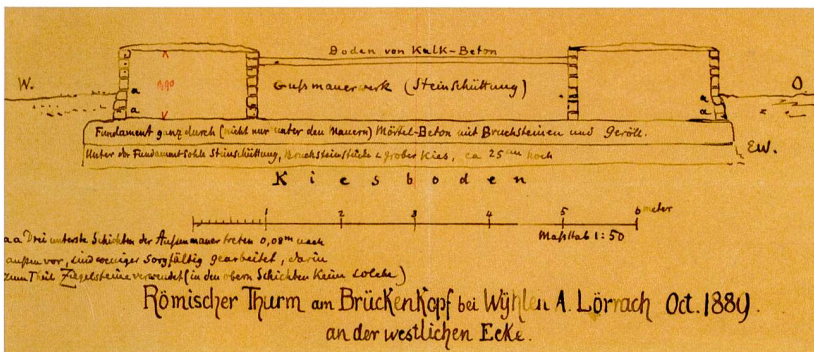 Boden von Kalk-Beton
W.
O
Gußmauerwerk (Steinschüttung)
a
a
a
a
Fundament ganz durch (nicht nur unter den Mauern) Mörtel-Beton mit Bruchsteinen und Geröll.
Unter der Fundamentsohle Steinschüttung, Bruchsteinstücke & grober Kies, ca 25 cm hoch
EW.
Kiesboden
1 2 3 4 5 6 meter
Maßstab 1:50
a a Drei unterste Schichten der Außenmauer treten 0,08m nach
außen vor, sind weniger sorgfältig gearbeitet, darin
zum Theil Ziegelsteine verwendet (in den obern Schichten keine solche)
Römischer Thurm am Brückenkopf bei Wyhlen A. Lörrach Oct. 1889.
an der westlichen Ecke.